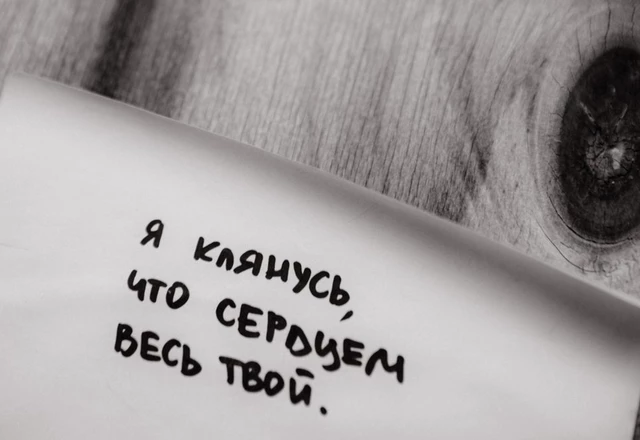 Я клянусь,
что СЕРДЦЕМ
ВЕСЬ ТВОЙ.